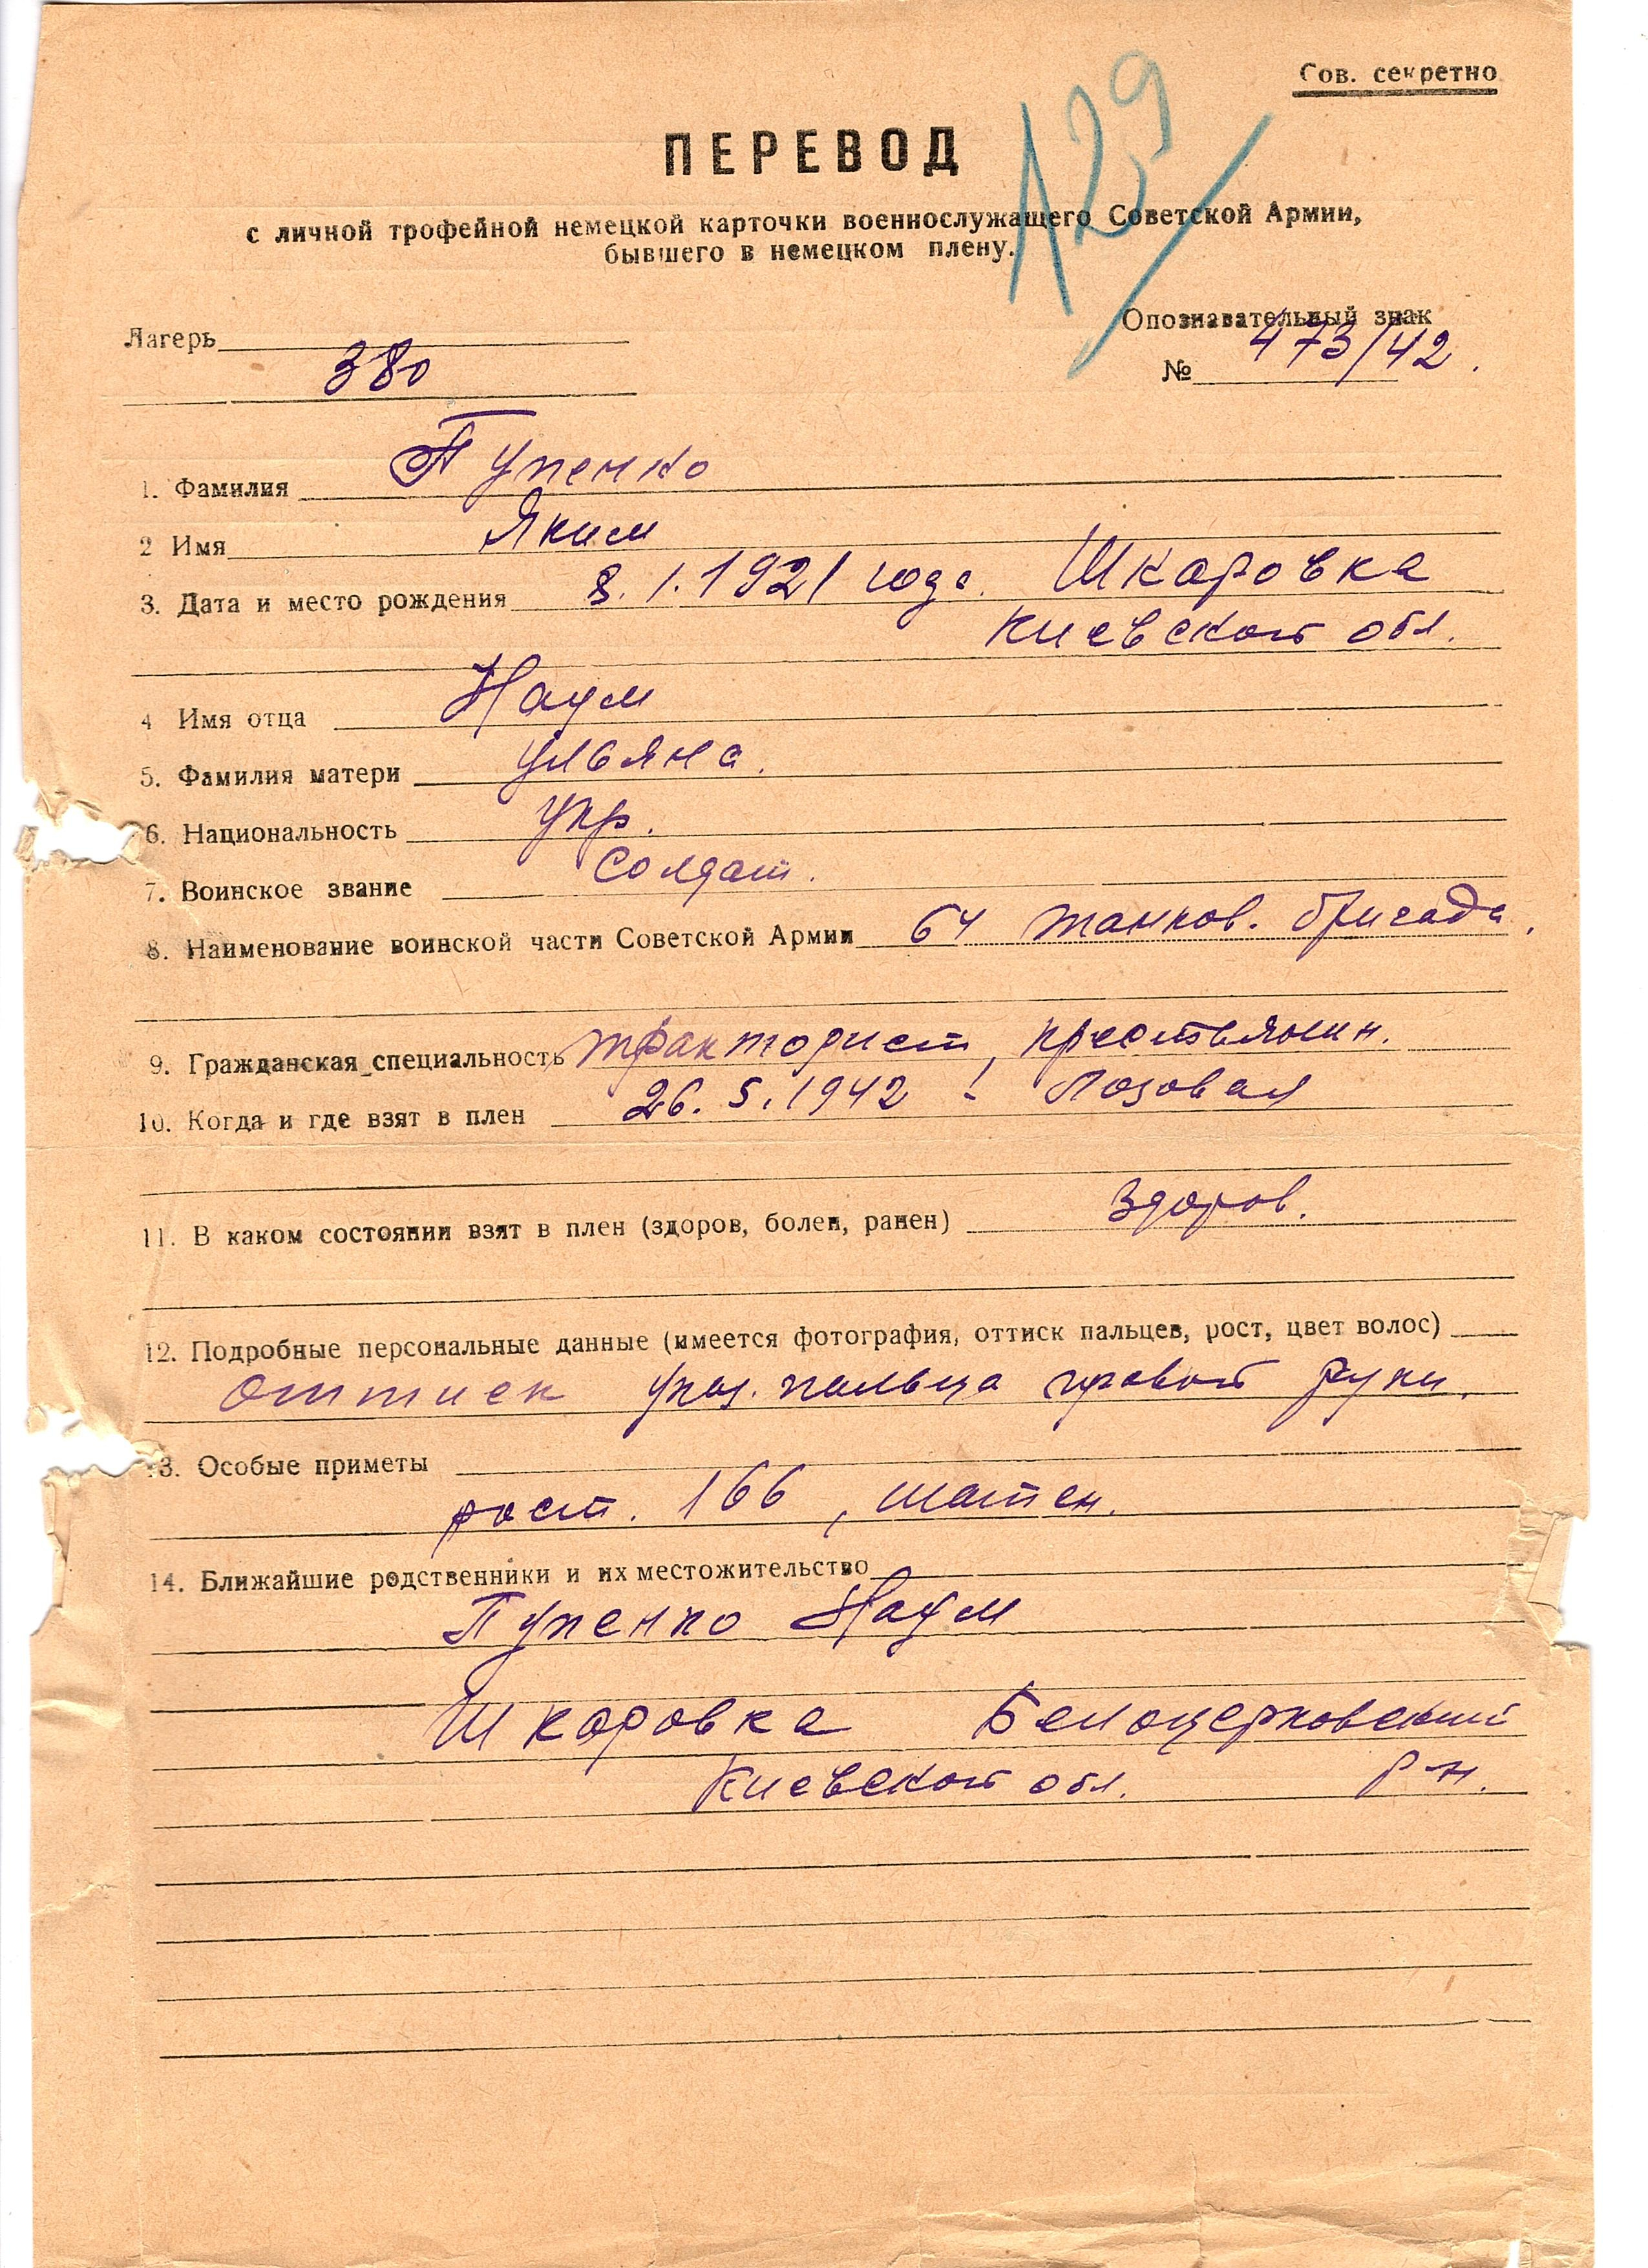 Сов. секретно
129
ПЕРЕВОД
с личной трофейной немецкой карточки военнослужащего Советской Армии,
бывшего в немецком плену.
Лагерь
380
Опознавательный знак
№ 473/42.
1. Фамилия Пупенко
2 Имя Яким
3. Дата и место рождения 8.1.1921 года. Шкаровка
Киевской обл.
4 Имя отца Наум
5. Фамилия матери Ульяна.
6. Национальность укр.
7. Воинское звание Солдат.
8. Наименование воинской части Советской Армии 64 танков. бригада.
9. Гражданская специальность тракторист, крестьянин.
10. Когда и где взят в плен 26.5.1942 - Лозовая
11. В каком состоянии взят в плен (здоров, болен, ранен) Здоров.
12. Подробные персональные данные (имеется фотография, оттиск пальцев, рост, цвет волос)
оттиск указ. пальца правой руки.
13. Особые приметы
рост. 166, шатен.
14. Ближайшие родственники и их местожительство
Пупенко Наум
Шкаровка Белоцерковский
Киевской обл. р-н.